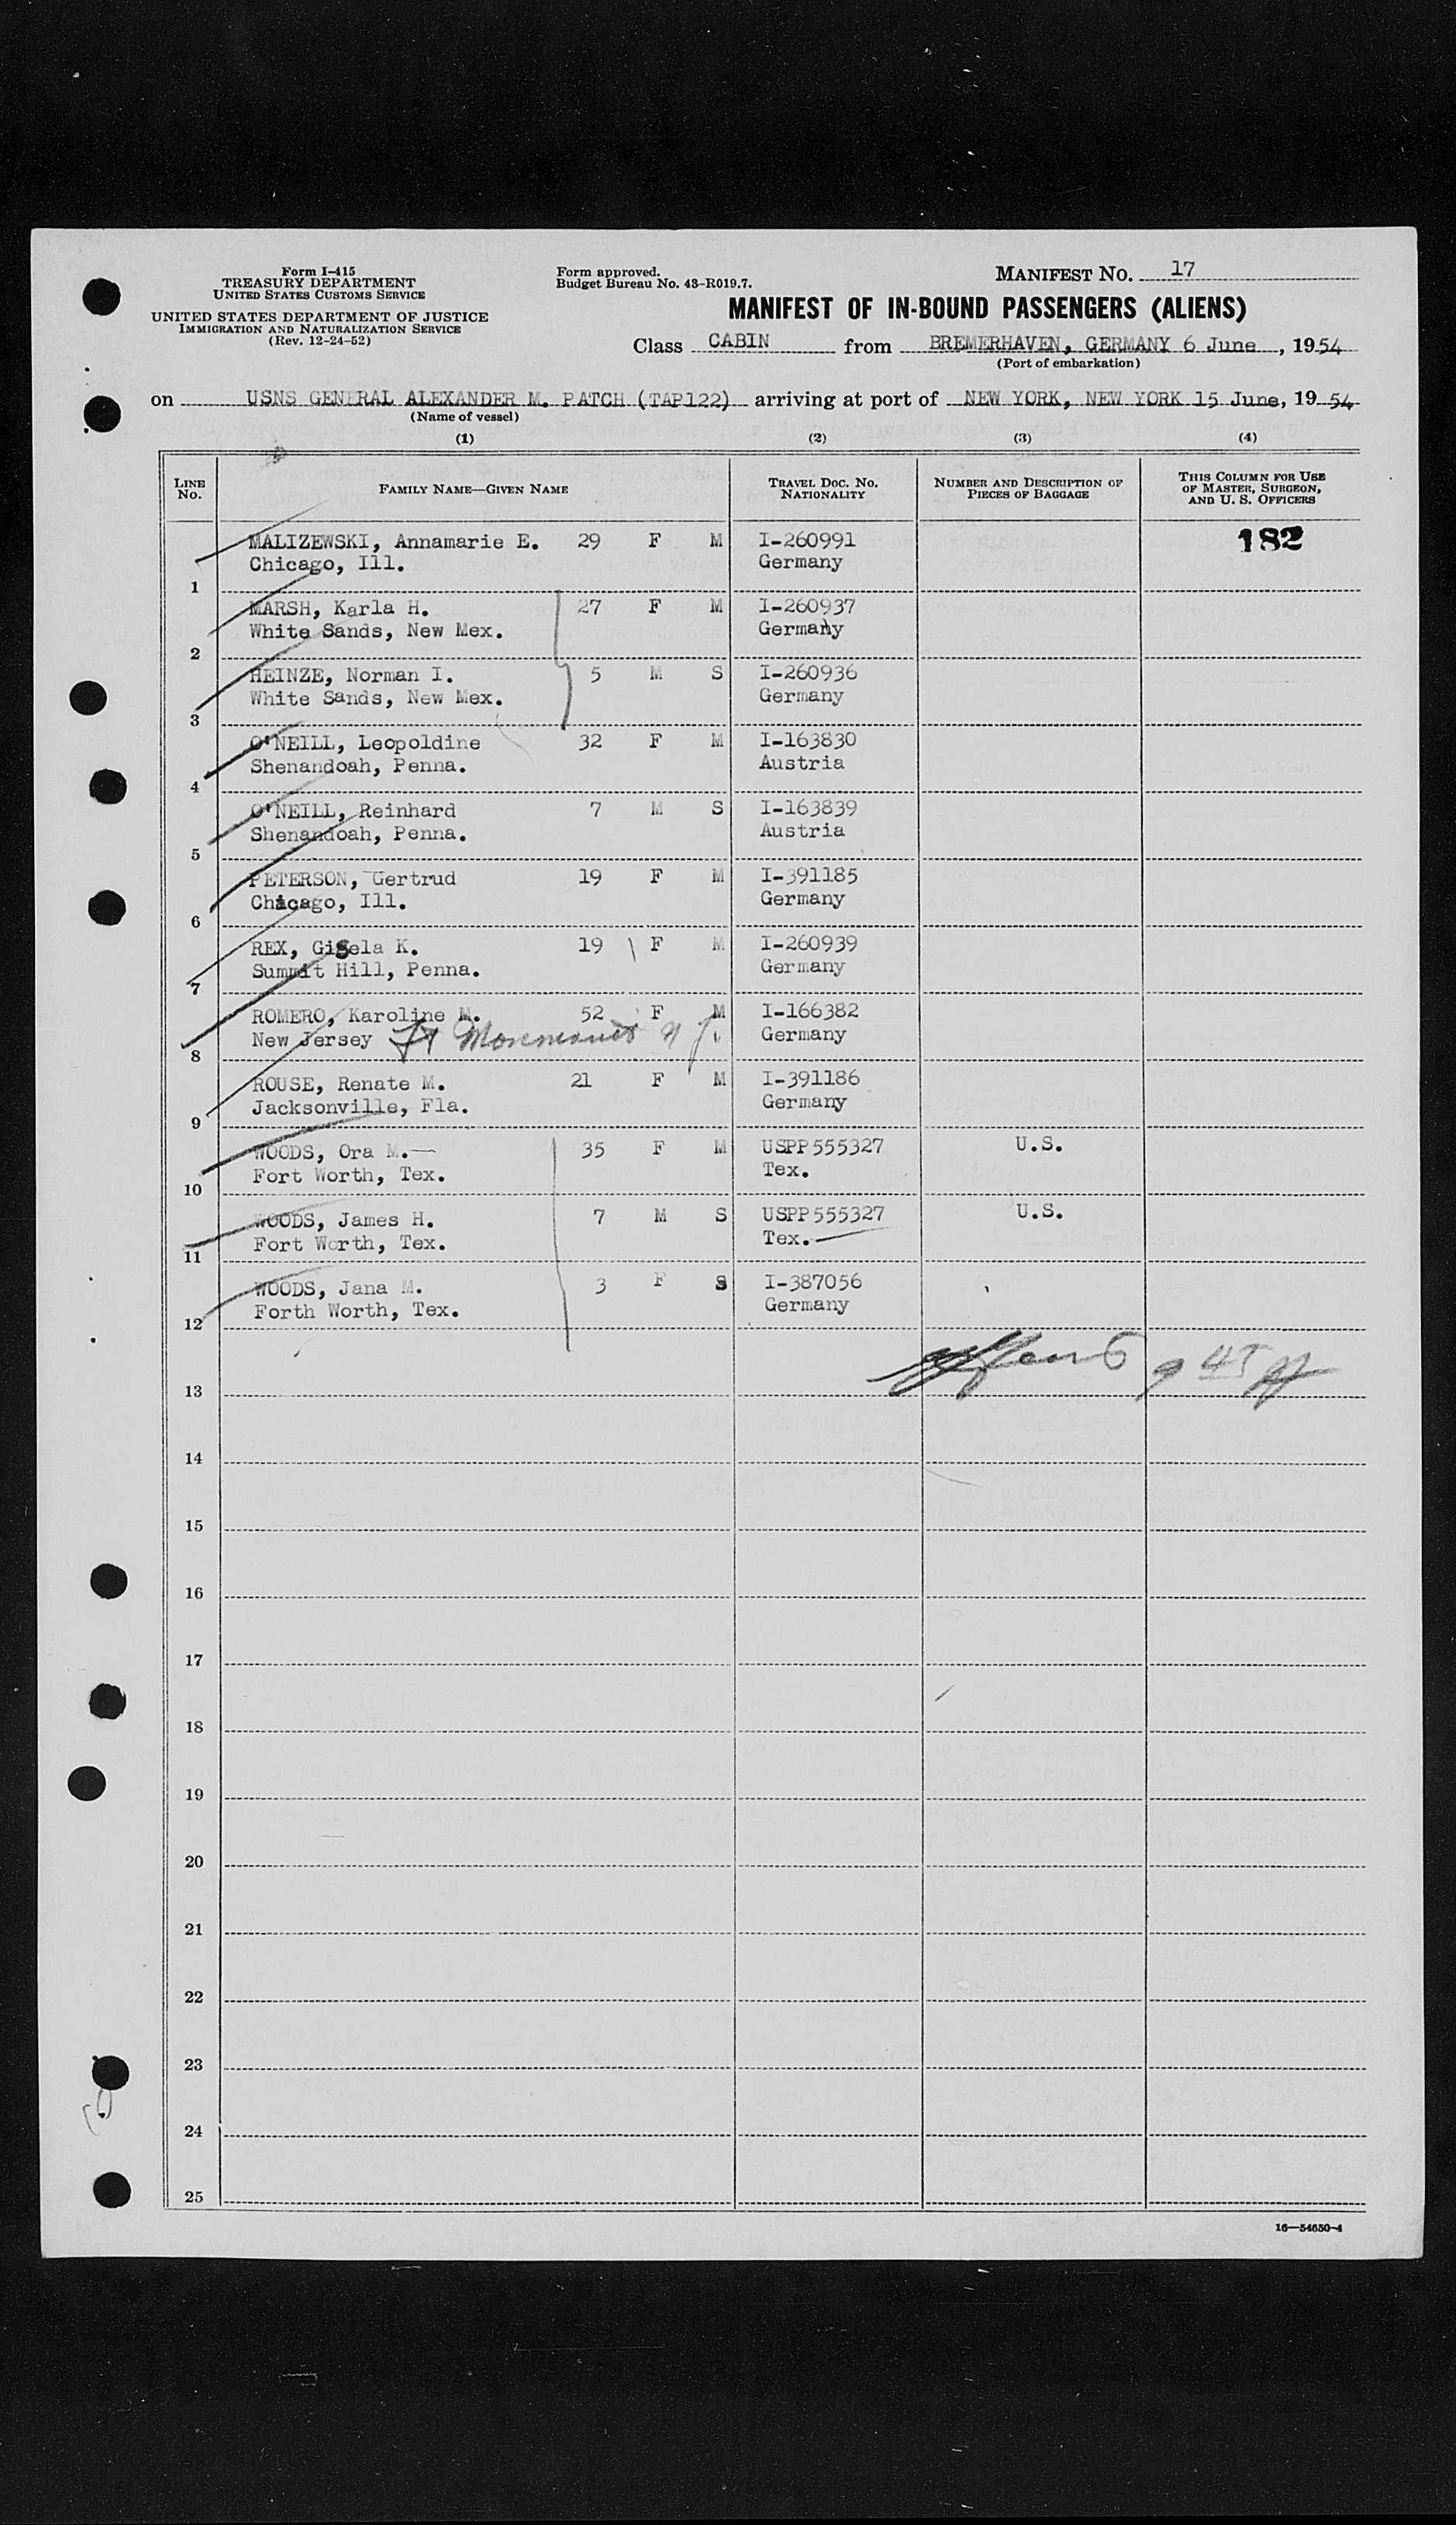 Form I-415
TREASURY DEPARTMENT
UNITED STATES CUSTOMS SERVICE
UNITED STATES DEPARTMENT OF JUSTICE
IMMIGRATION AND NATURALIZATION SERVICE
(Rev. 12-24-52)
Form approved.
Budget Bureau No. 43-R019.7.
MANIFEST NO. 17
MANIFEST OF IN-BOUND PASSENGERS (ALIENS)
Class CABIN from BREMERHAVEN, GERMANY 6 June, 1954
(Port of embarkation)
on USNS GENERAL ALEXANDER M. PATCH (TAP122) arriving at port of NEW YORK, NEW YORK 15 June, 19 54
(Name of vessel)
(1) (2) (3) (4)
LINE NO. FAMILY NAME—GIVEN NAME TRAVEL DOC. NO. NATIONALITY NUMBER AND DESCRIPTION OF PIECES OF BAGGAGE THIS COLUMN FOR USE OF MASTER, SURGEON, AND U. S. OFFICERS
MALIZEWSKI, Annamarie E. 29 F M I-260991 182
Chicago, Ill. Germany
1
MARSH, Karla H. 27 F M I-260937
White Sands, New Mex. Germany
2
HEINZE, Norman I. 5 M S I-260936
White Sands, New Mex. Germany
3
O'NEILL, Leopoldine 32 F M I-163830
Shenandoah, Penna. Austria
4
O'NEILL, Reinhard 7 M S I-163839
Shenandoah, Penna. Austria
5
PETERSON, Gertrud 19 F M I-391185
Chicago, Ill. Germany
6
REX, Gisela K. 19 F M I-260939
Summit Hill, Penna. Germany
7
ROMERO, Karoline M. 52 F M I-166382
New Jersey Ft Monmouth N J Germany
8
ROUSE, Renate M. 21 F M I-391186
Jacksonville, Fla. Germany
9
WOODS, Ora M.— 35 F M USPP555327 U.S.
Fort Worth, Tex. Tex.
10
WOODS, James H. 7 M S USPP555327 U.S.
Fort Worth, Tex. Tex.
11
WOODS, Jana M. 3 F S I-387056
Forth Worth, Tex. Germany
12
13
14
15
16
17
18
19
20
21
22
23
24
25
16—54650-4